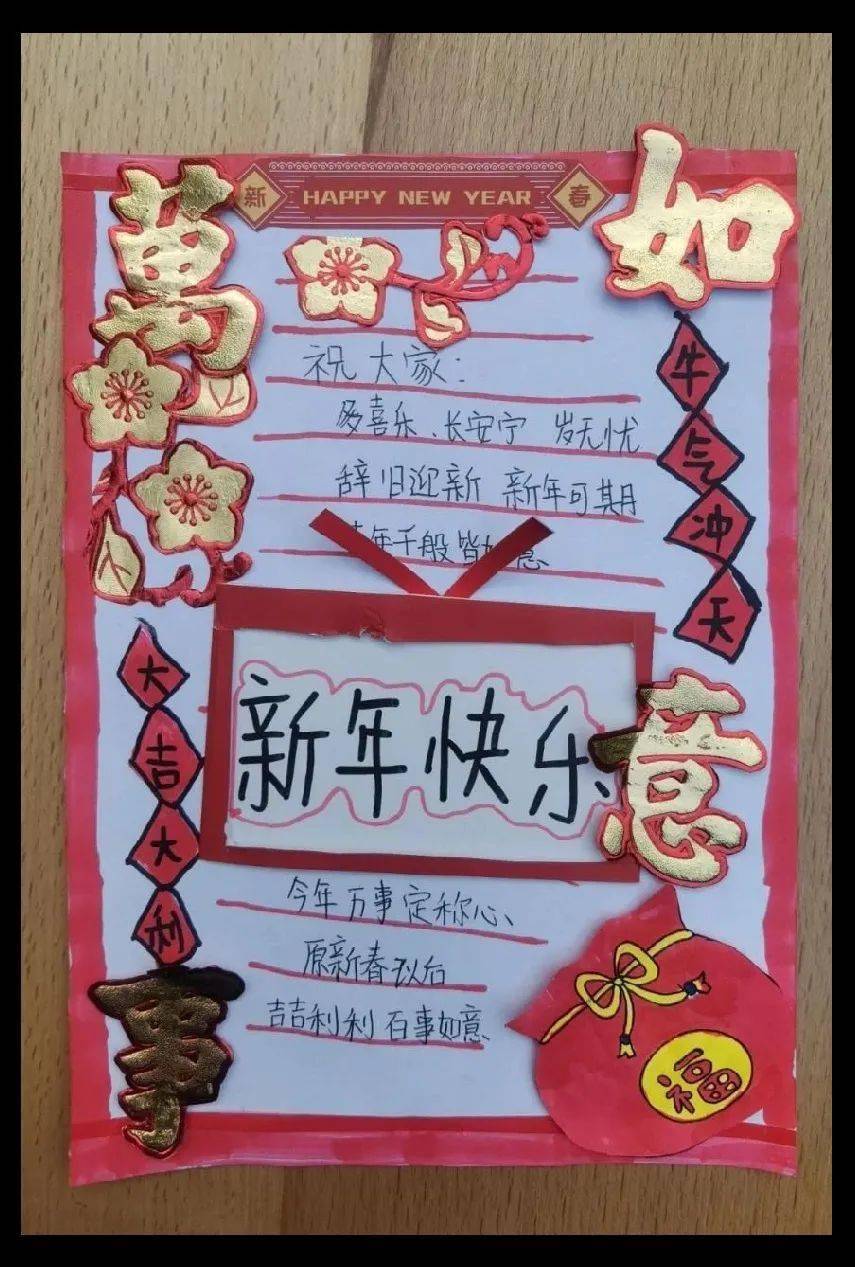 新 HAPPY NEW YEAR 春
萬事
如意
祝大家：
多喜乐、长安宁 岁无忧
辞旧迎新 新年可期
年千般皆如意
牛气冲天
大吉大利
新年快乐
今年万事定称心、
原新春以后
吉吉利利 百事如意
福